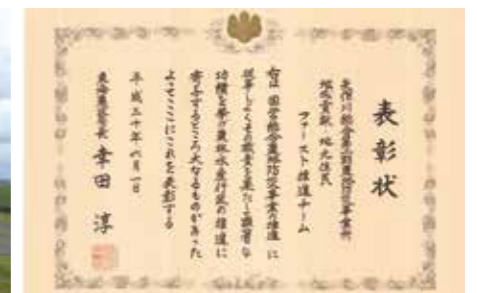 表彰状
矢作川総合第二期農地防災事業所
地域貢献・地元住民
ファースト推進チーム
右は 国営総合農地防災事業の推進に
従事しよくその職責を果たし顕著な
功績を挙げ農林水産行政の推進に
寄与するところ大なるものがあった
よってここにこれを表彰する
平成三十年六月一日
東海農政局長 幸田 淳